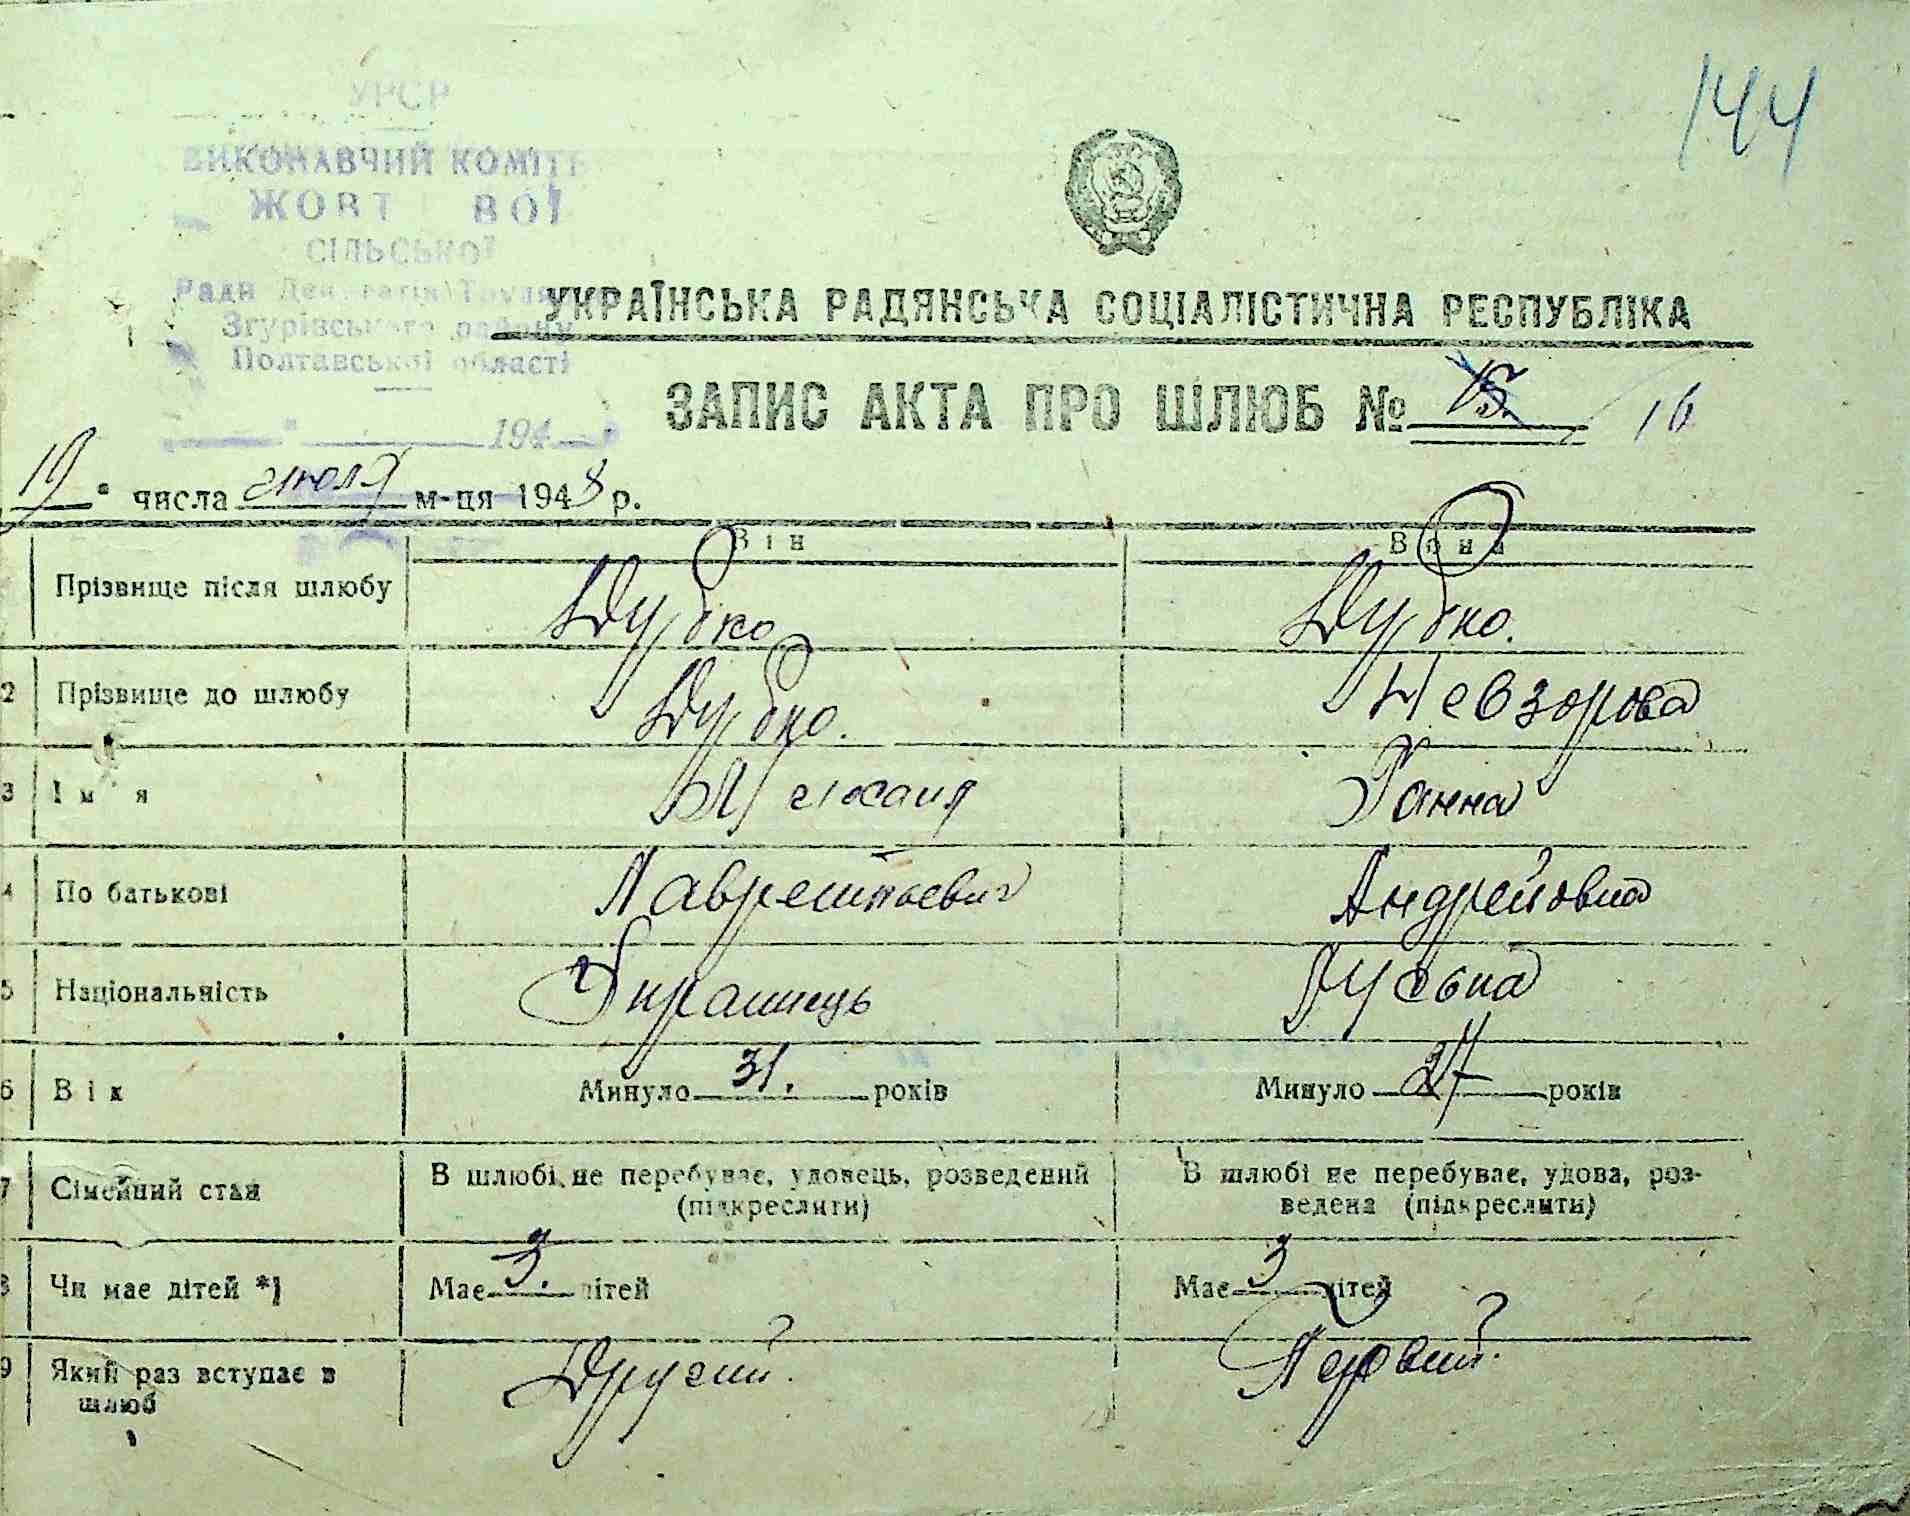 144
УРСР
ВИКОНАВЧИЙ КОМІТЕ
ЖОВТ ВОЇ
СІЛЬСЬКОЇ
Ради
Згурівського району
Полтавської області
194
УКРАЇНСЬКА РАДЯНСЬКА СОЦІАЛІСТИЧНА РЕСПУБЛІКА
ЗАПИС АКТА ПРО ШЛЮБ № 15. 16
19 " числа июля м-ця 1948 р.
Він Вона
Прізвище після шлюбу Дубко Дубко.
2 Прізвище до шлюбу Дубко. Невзорова
3 Ім'я Михаил Ганна
4 По батькові Лаврентьевич Андрейовна
5 Національність Українець Руська
6 Вік Минуло 31. років Минуло 27 років
7 Сімейний стан В шлюбі не перебуває, удовець, розведений (підкреслити) В шлюбі не перебуває, удова, роз-
ведена (підкреслити)
8 Чи має дітей *) Має 3. дітей Має 3 дітей
9 Який раз вступає в шлюб Другий. Первий.